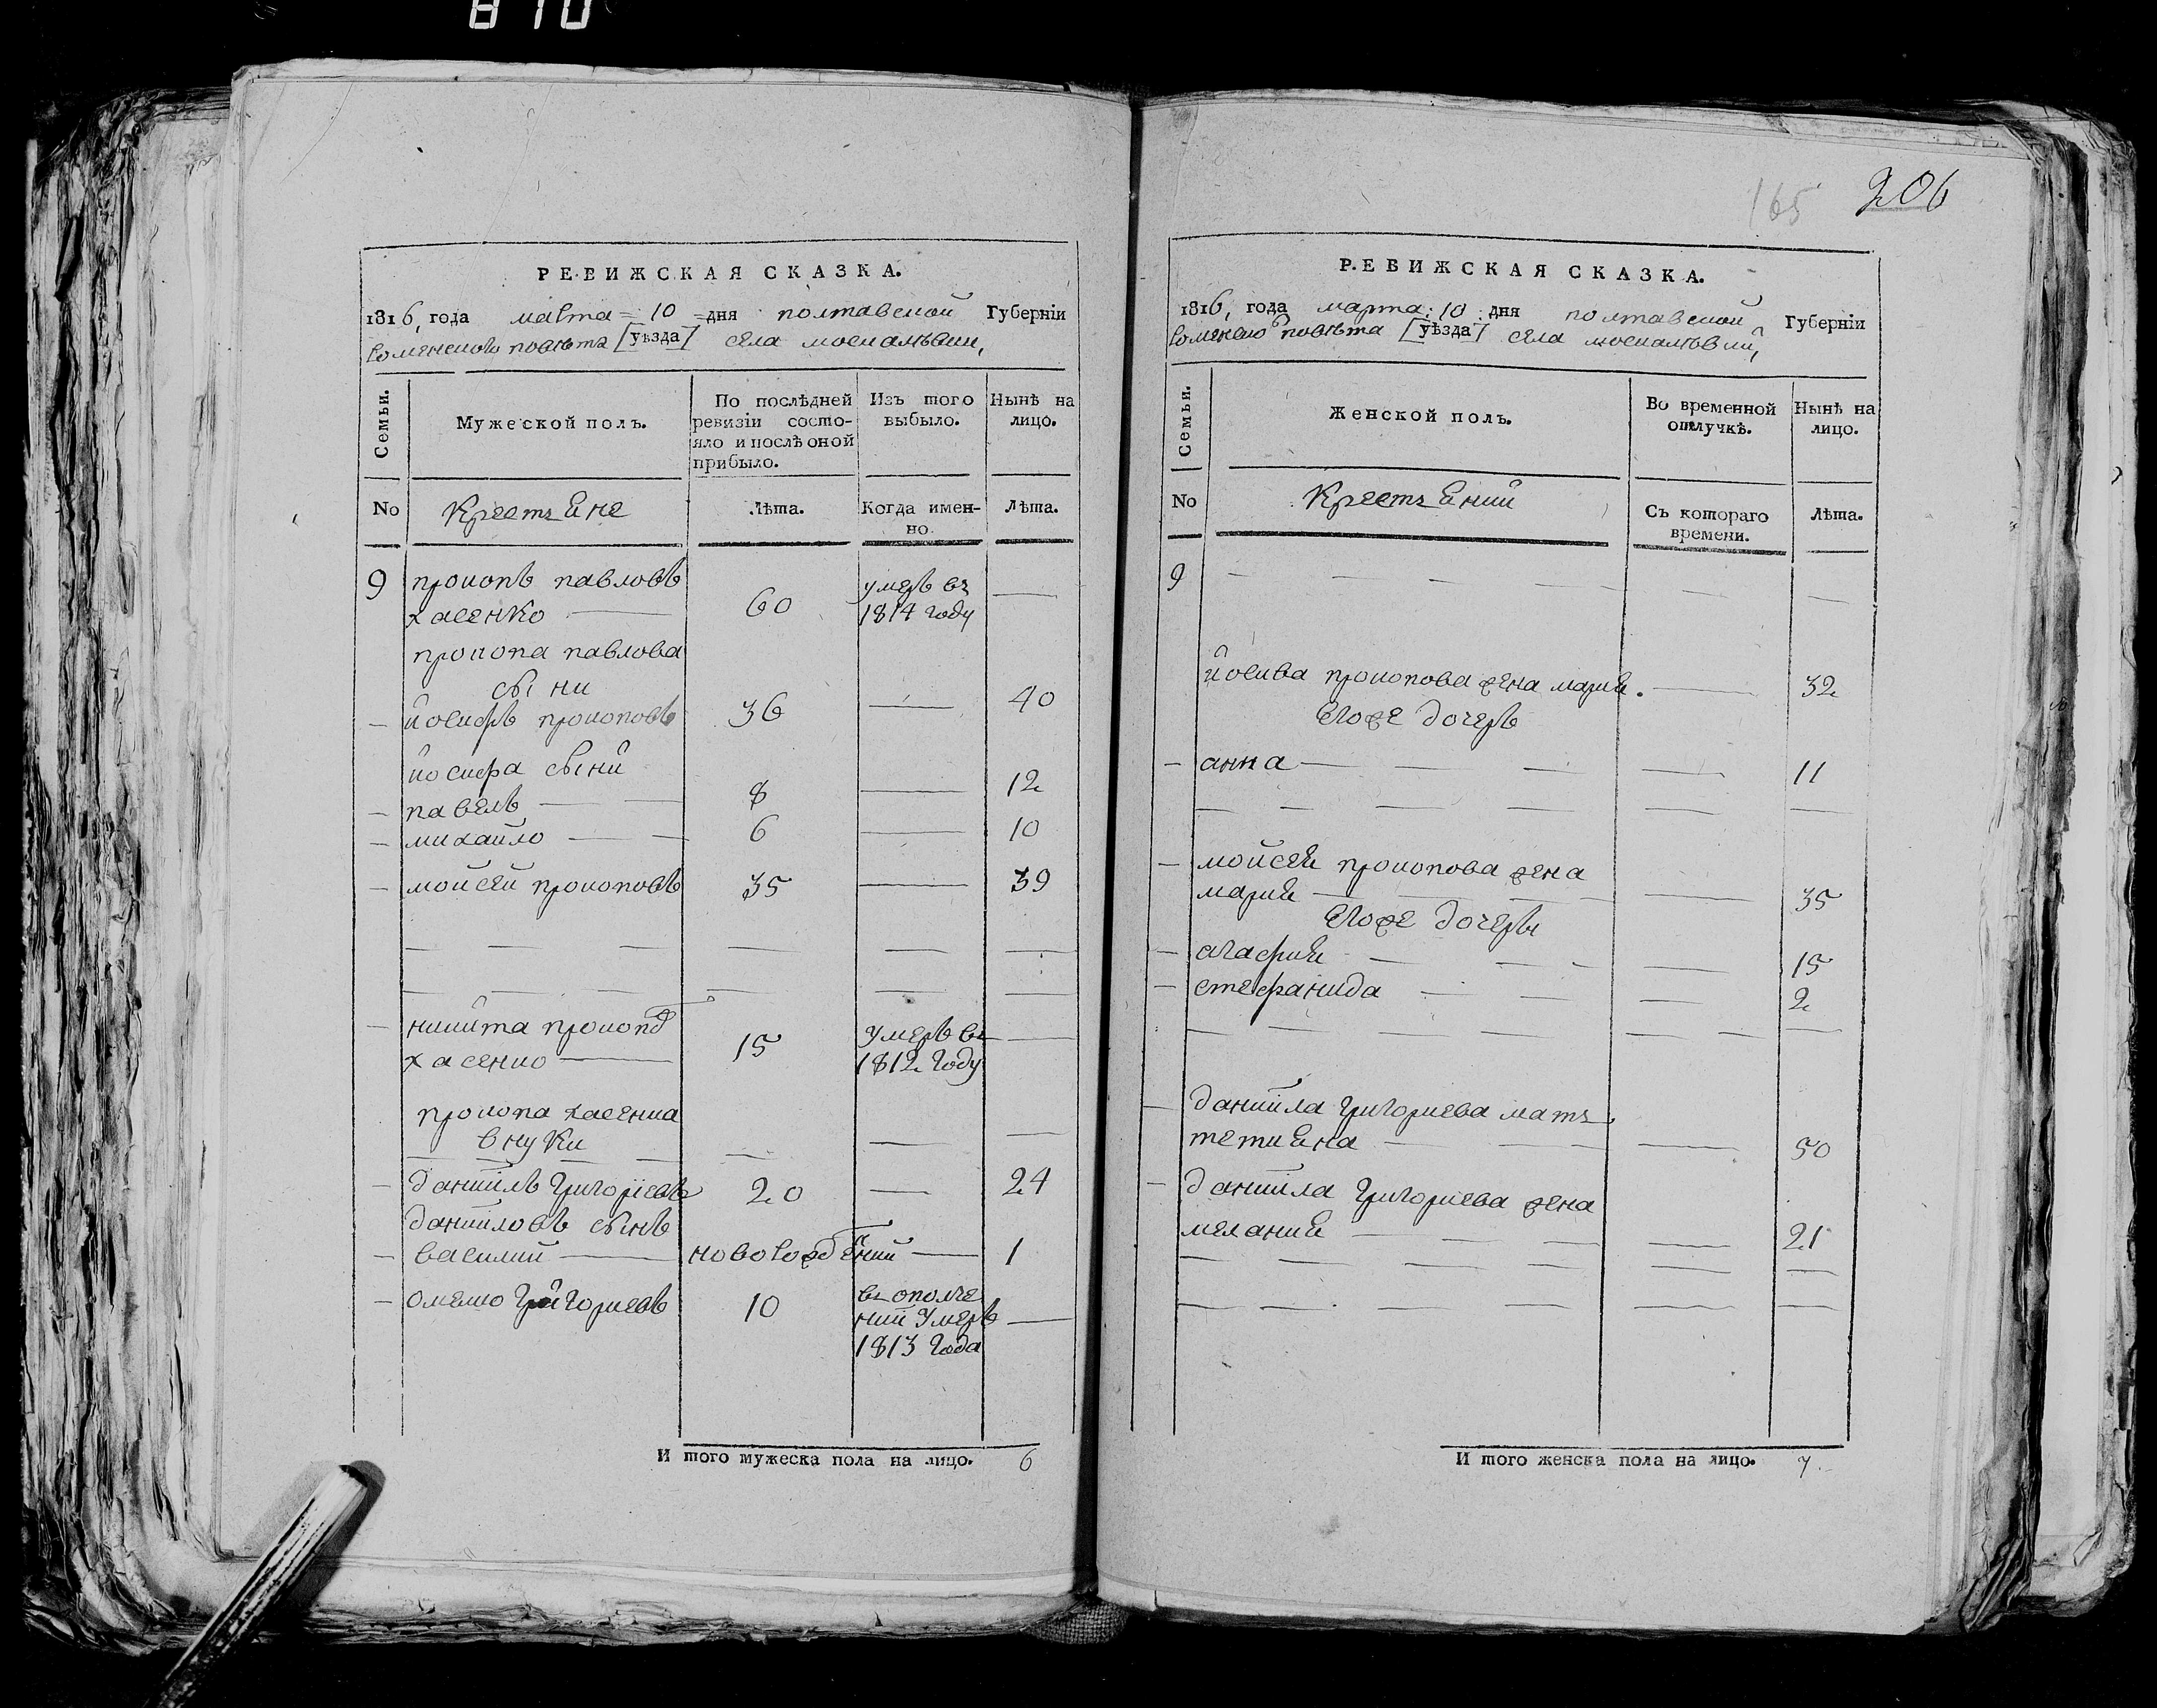 810
РЕВИЖСКАЯ СКАЗКА.
1816, года марта 10 дня полтавской Губерніи
Роменского повѣта [уѣзда] села москалѣвки,
Семьи.
Мужеской полъ.
По послѣдней ревизіи состо-
яло и послѣ оной
прибыло.
Изъ того
выбыло.
Нынѣ на
лицо.
No
Крестъяне
Лѣта.
Когда имен-
но.
Лѣта.
9 прокопъ павловъ
хасенко — 60 умеръ въ 1814 году —
прокопа павлова
сыни
— йосифъ прокоповъ 36 — 40
йосифа сыни
— павелъ — — 8 — 12
— михайло — — 6 — 10
— мойсей прокоповъ 35 — 39
— никита прокоповъ
хасенко — 15 умеръ въ 1812 году —
прокопа хасенка
внуки
— даниилъ григориевъ 20 — 24
данииловъ сынъ
— василий — новорождений — 1
— омелко григориевъ 10 въ ополче
ний умеръ —
1813 года
И того мужеска пола на лицо. 6
165 206
РЕВИЖСКАЯ СКАЗКА.
1816, года марта 10 дня полтавской Губерніи
Роменского повѣта [уѣзда] села москалѣвки,
Семьи.
Женской полъ.
Во временной
отлучкѣ.
Нынѣ на
лицо.
No
Крестъянки
Съ котораго
времени.
Лѣта.
9 — — — — — —
йосива прокопова жена мария — 32
Егоже дочеръ
— анна — — — — 11
— мойсея прокопова жена
мария — — — — 35
Егоже дочеры
— агафия — — — — 15
— стефанида — — — 2
— даниила григориева матъ
тетияна — — — 50
— даниила григориева жена
мелания — — — — 21
И того женска пола на лицо. 7